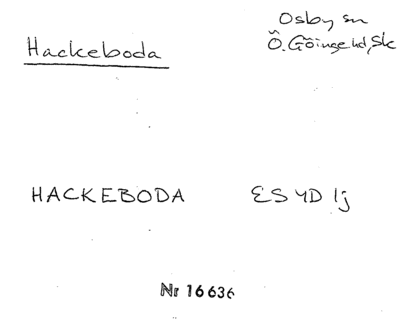 Hackeboda
Osby sn
Ö. Göinge hd, Sk
HACKEBODA ES 4D 1j
Nr 16636